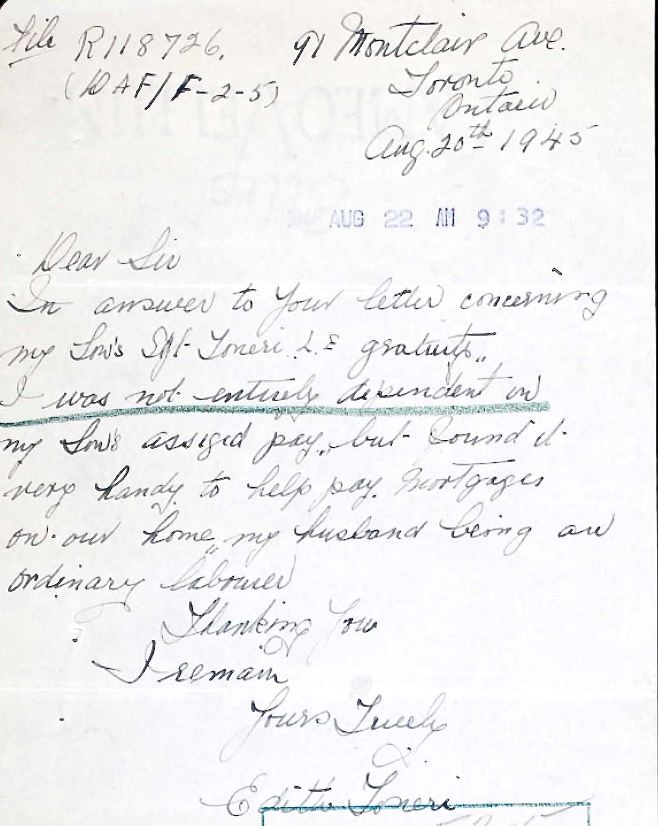 File R118726. 91 Montclair Ave.
(DAF/F-2-5) Toronto
Ontario
Aug. 20th 1945
AUG 22 AM 9:32
Dear Sir
In answer to Your letter concerning
my Son's Sgt Toneri L.E gratuity,,
I was not entirely dependent on
my Son's assigd pay,, but found it
very handy to help pay Mortgages
on our home,, my husband being an
ordinary labourer
Thanking You
I remain
Yours Truely
Edith Toneri